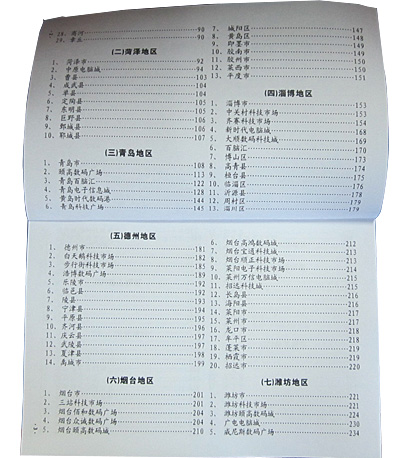 28. 商河 90
29. 章丘 90
(二)菏泽地区
1. 菏泽市 92
2. 中原电脑城 94
3. 曹县 103
4. 成武县 104
5. 单县 104
6. 定陶县 105
7. 东明县 105
8. 巨野县 106
9. 鄄城县 106
10. 郓城县 107
(三)青岛地区
1. 青岛市 108
2. 颐高数码广场 113
3. 青岛百脑汇 122
4. 青岛电子信息城 128
5. 黄岛时代数码港 144
6. 青岛科技广场 145
7. 城阳区 147
8. 黄岛区 148
9. 即墨市 149
10. 胶南市 149
11. 胶州市 150
12. 莱西市 151
13. 平度市 151
(四)淄博地区
1. 淄博市 153
2. 中关村科技市场 153
3. 齐赛科技市场 154
4. 新时代电脑城 168
5. 大顺数码科技城 169
6. 百脑汇 170
7. 博山区 173
8. 高青县 174
9. 桓台县 175
10. 临淄区 176
11. 沂源县 178
12. 周村区 178
13. 淄川区 179
(五)德州地区
1. 德州市 181
2. 白天鹅科技市场 182
3. 步行街科技市场 185
4. 浩博数码广场 189
5. 乐陵市 192
6. 临邑县 192
7. 陵县 193
8. 宁津县 194
9. 平原县 195
10. 齐河县 196
11. 庆云县 197
12. 武城县 197
13. 夏津县 198
14. 禹城市 199
(六)烟台地区
1. 烟台市 201
2. 三站科技市场 204
3. 烟台佰和数码广场 204
4. 烟台众诚数码广场 204
5. 烟台颐高数码城 210
6. 烟台高鸿数码城 212
7. 烟台宝通科技城 213
8. 烟台颐正科技市场 213
9. 莱阳电子科技市场 213
10. 莱州万信电脑城 215
11. 招远科技城 215
12. 长岛县 216
13. 海阳县 216
14. 莱阳市 217
15. 莱州市 217
16. 龙口市 218
17. 牟平区 218
18. 蓬莱市 219
19. 栖霞市 219
20. 招远市 220
(七)潍坊地区
1. 潍坊市 221
2. 潍坊科技市场 221
3. 潍坊颐高数码城 224
4. 广电电脑城 230
5. 威尼斯数码广场 234